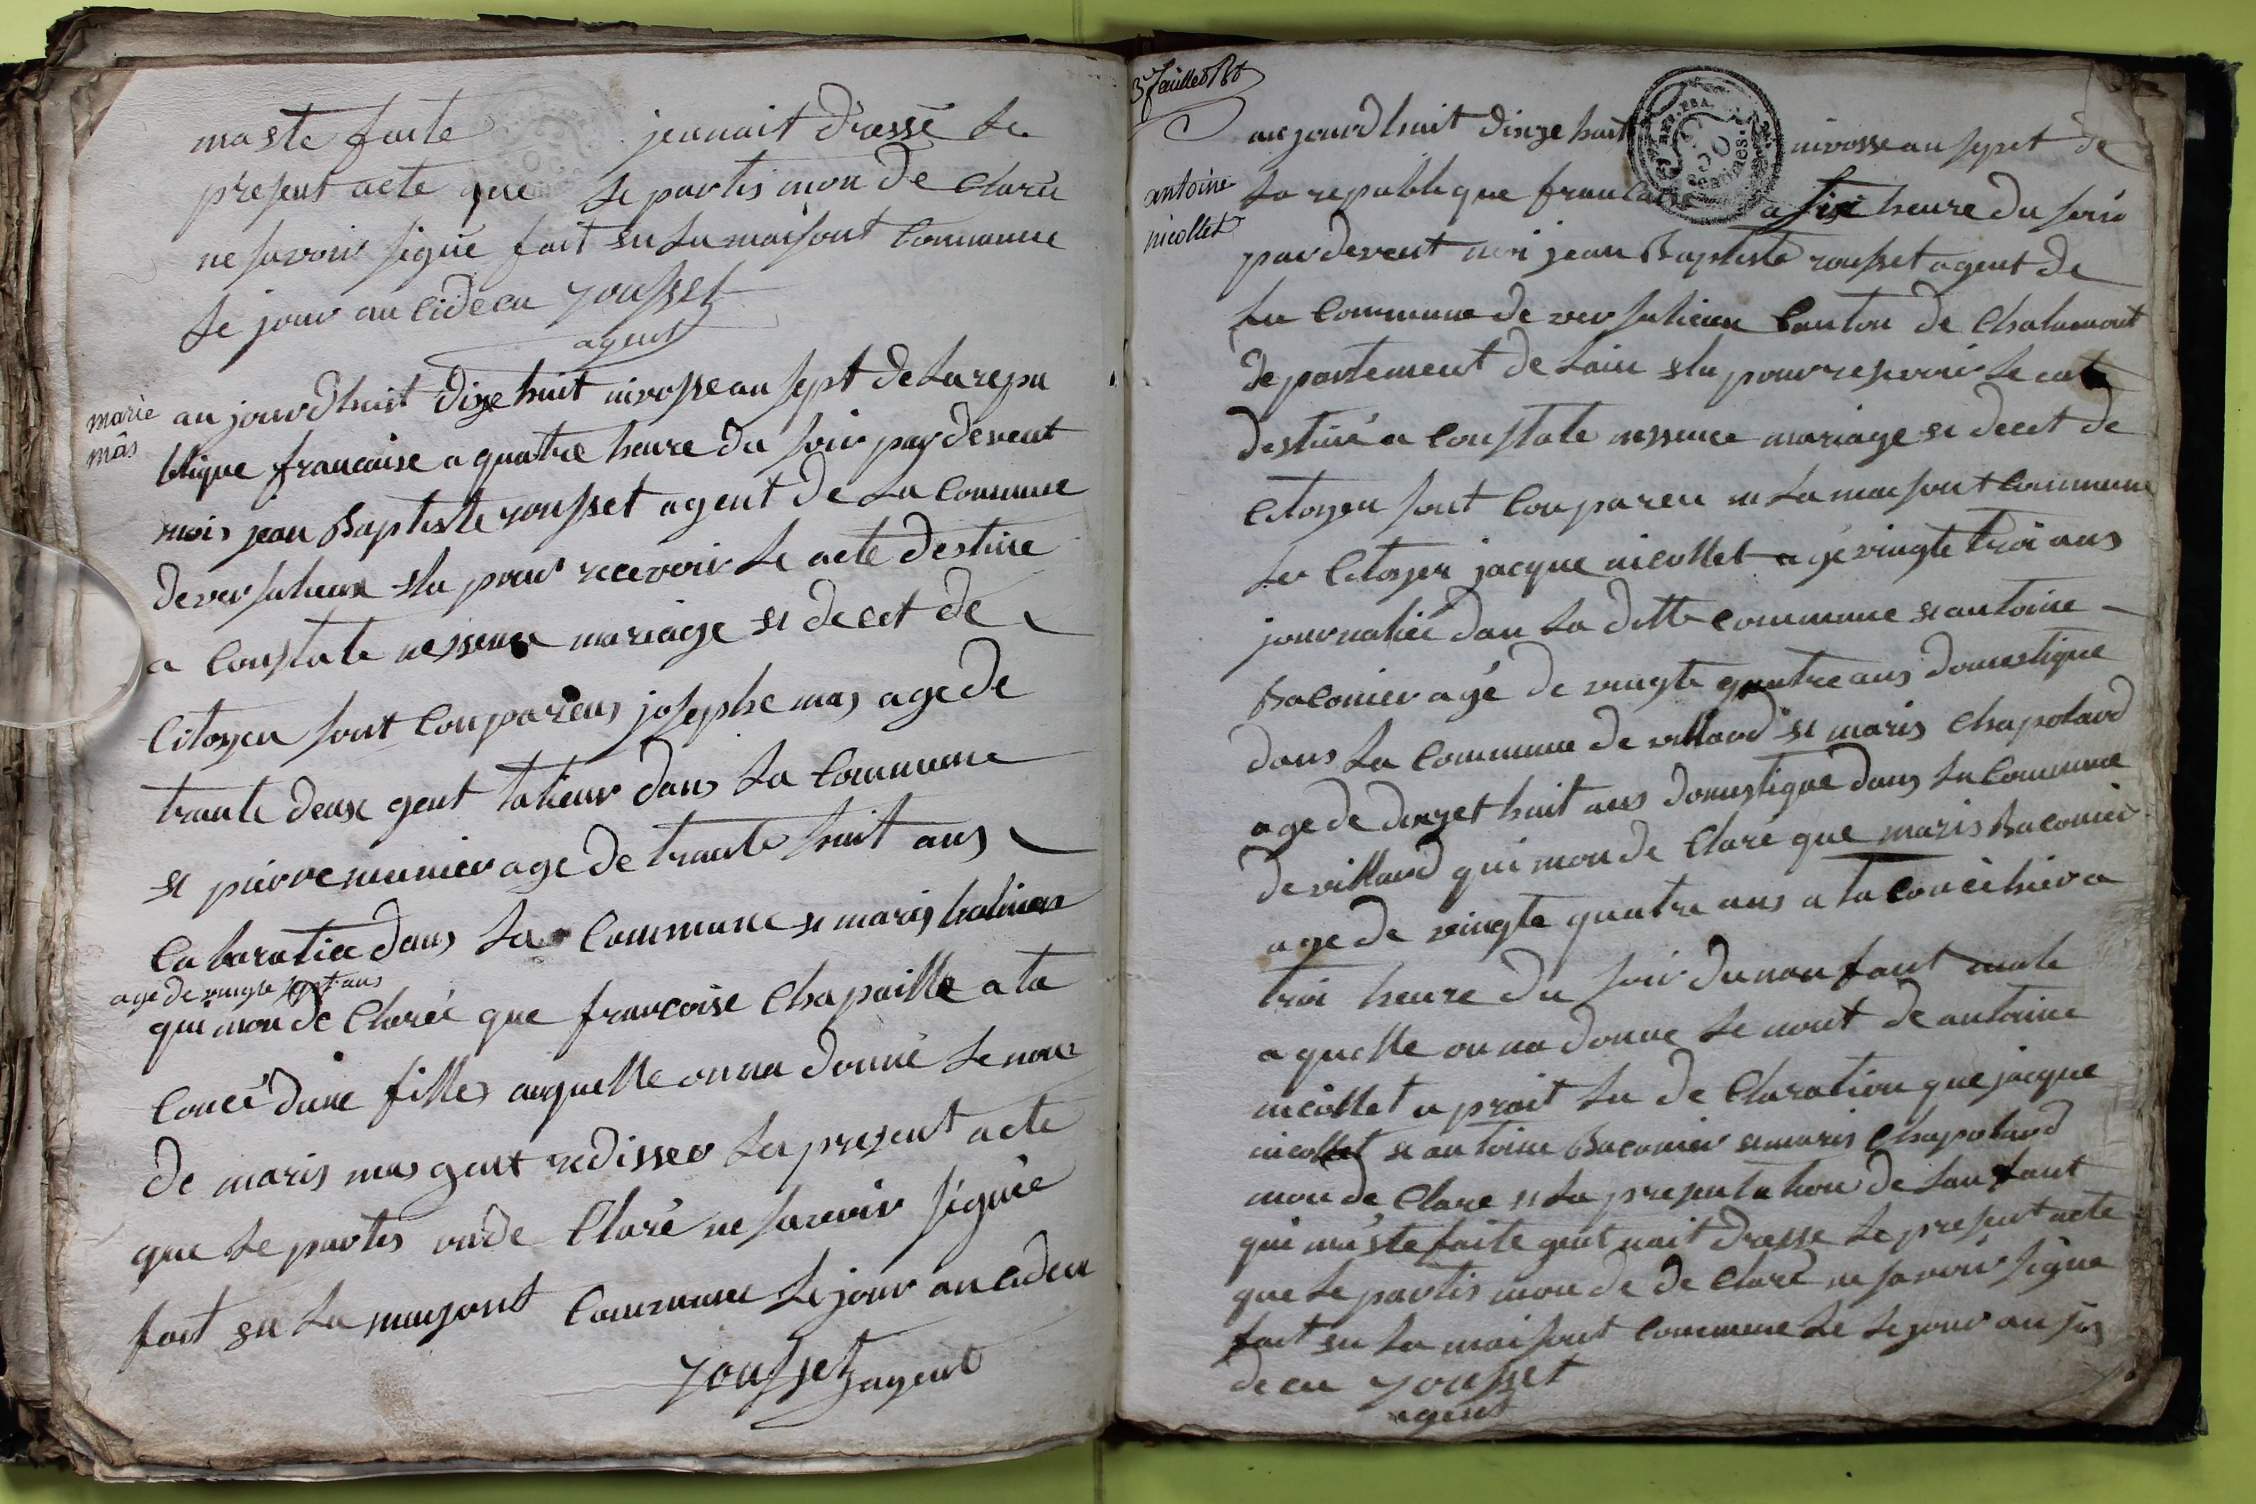 ma ste faite jeanait dressé Le
present acte que Le partis mon de Claré
ne savoir signé fait en La maisont Commune
Le jour an cideen rousset
agent
marie
mâs
aujourdhuit dize huit nivosse an sept de La repu
blique francaise a quatre heure du soir par devent
mois jean Baptiste rousset agent de La Commune
de versalieux élu pour recevoir Le acte destine
a Constate nessence mariage et decet de
Citoyen sont Comparens josephe mas age de
trante deux gent talieur dans La Commune
et pierre munier age de trante huit ans
Cabaratiee dans La Commune et maris
age de vingte sept ans
qui mon de Claréé que francoise Chapaille a ta
Coucé dune filles auquelle on na donné Le non
de maris mas gent redisser Le present acte
que Le partis onde Claré ne savoir signée
fait en La maysont Commune Le jour an cideen
rousset agent
3e feuillet
antoine
nicollet
aujourdhuit dize huit nivosse an sept de
La republique francaise a six heure du soir
par devent moi jean Baptiste rousset agent de
La Commune de versalieux Canton de Chalamont
departement de Lain élu pour reservoir Le acte
destiné a Constate nessence mariage et decet de
Citoyen sont Comparen en La maisont Commune
Le Citoyen jacque nicollet agé vingte troi ans
journaliée dan La ditte Commune et antoine
Baconier agé de vingte quatre ans domestique
dans La Commune de villard et maris Chapoland
age de dizet huit ans domestique dans La Commune
de villard qui mon de Claré que maris Baconier
age de vingte quatre ans a ta Coucé hier a
troi heure du soir dunanfant male
aquelle on na donne Le nont de antoine
nicollet a prait La de Claration que jacque
nicollet et antoine Baconier et maris Chapoland
mon de Clare et La presentation de Lanfant
qui ma éte faite gent nait dresse Le present acte
que Le partis mon de de Claré ne savoir signe
fait en La maisont Commune Le Le jour an jis
de cu rousset
agent